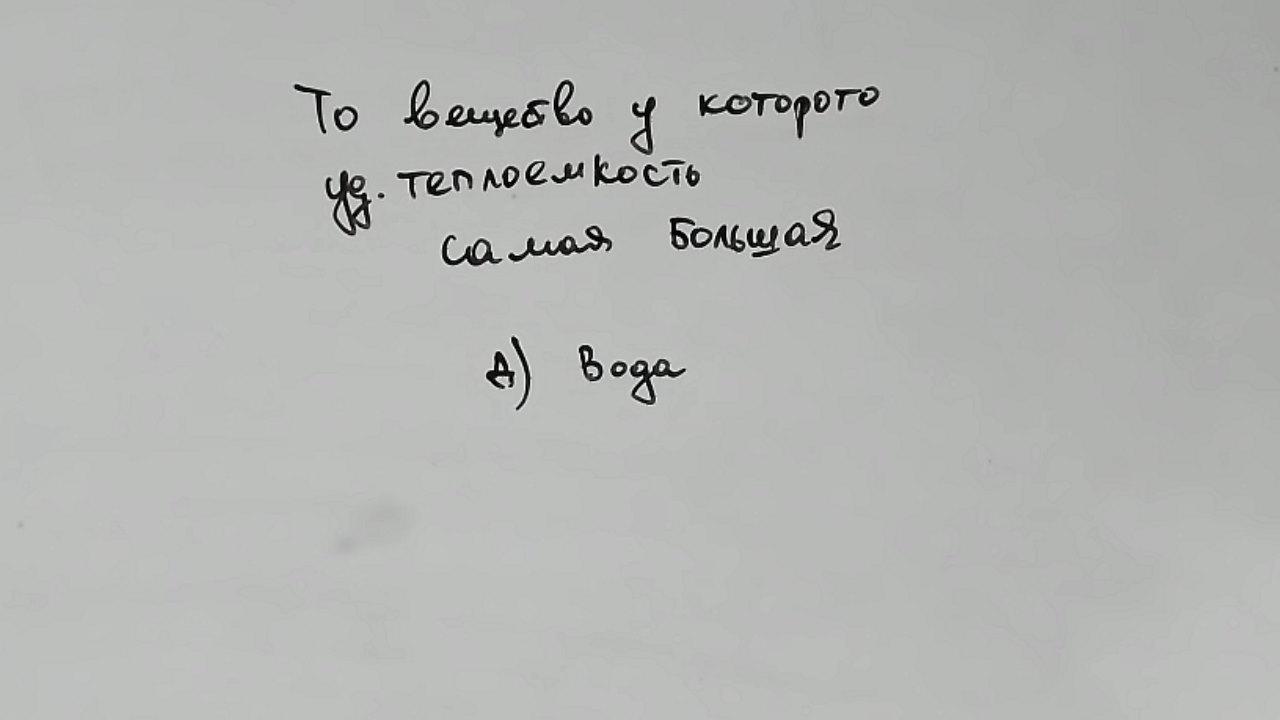 То вещество у которого
уд. теплоемкость
самая большая
А) Вода